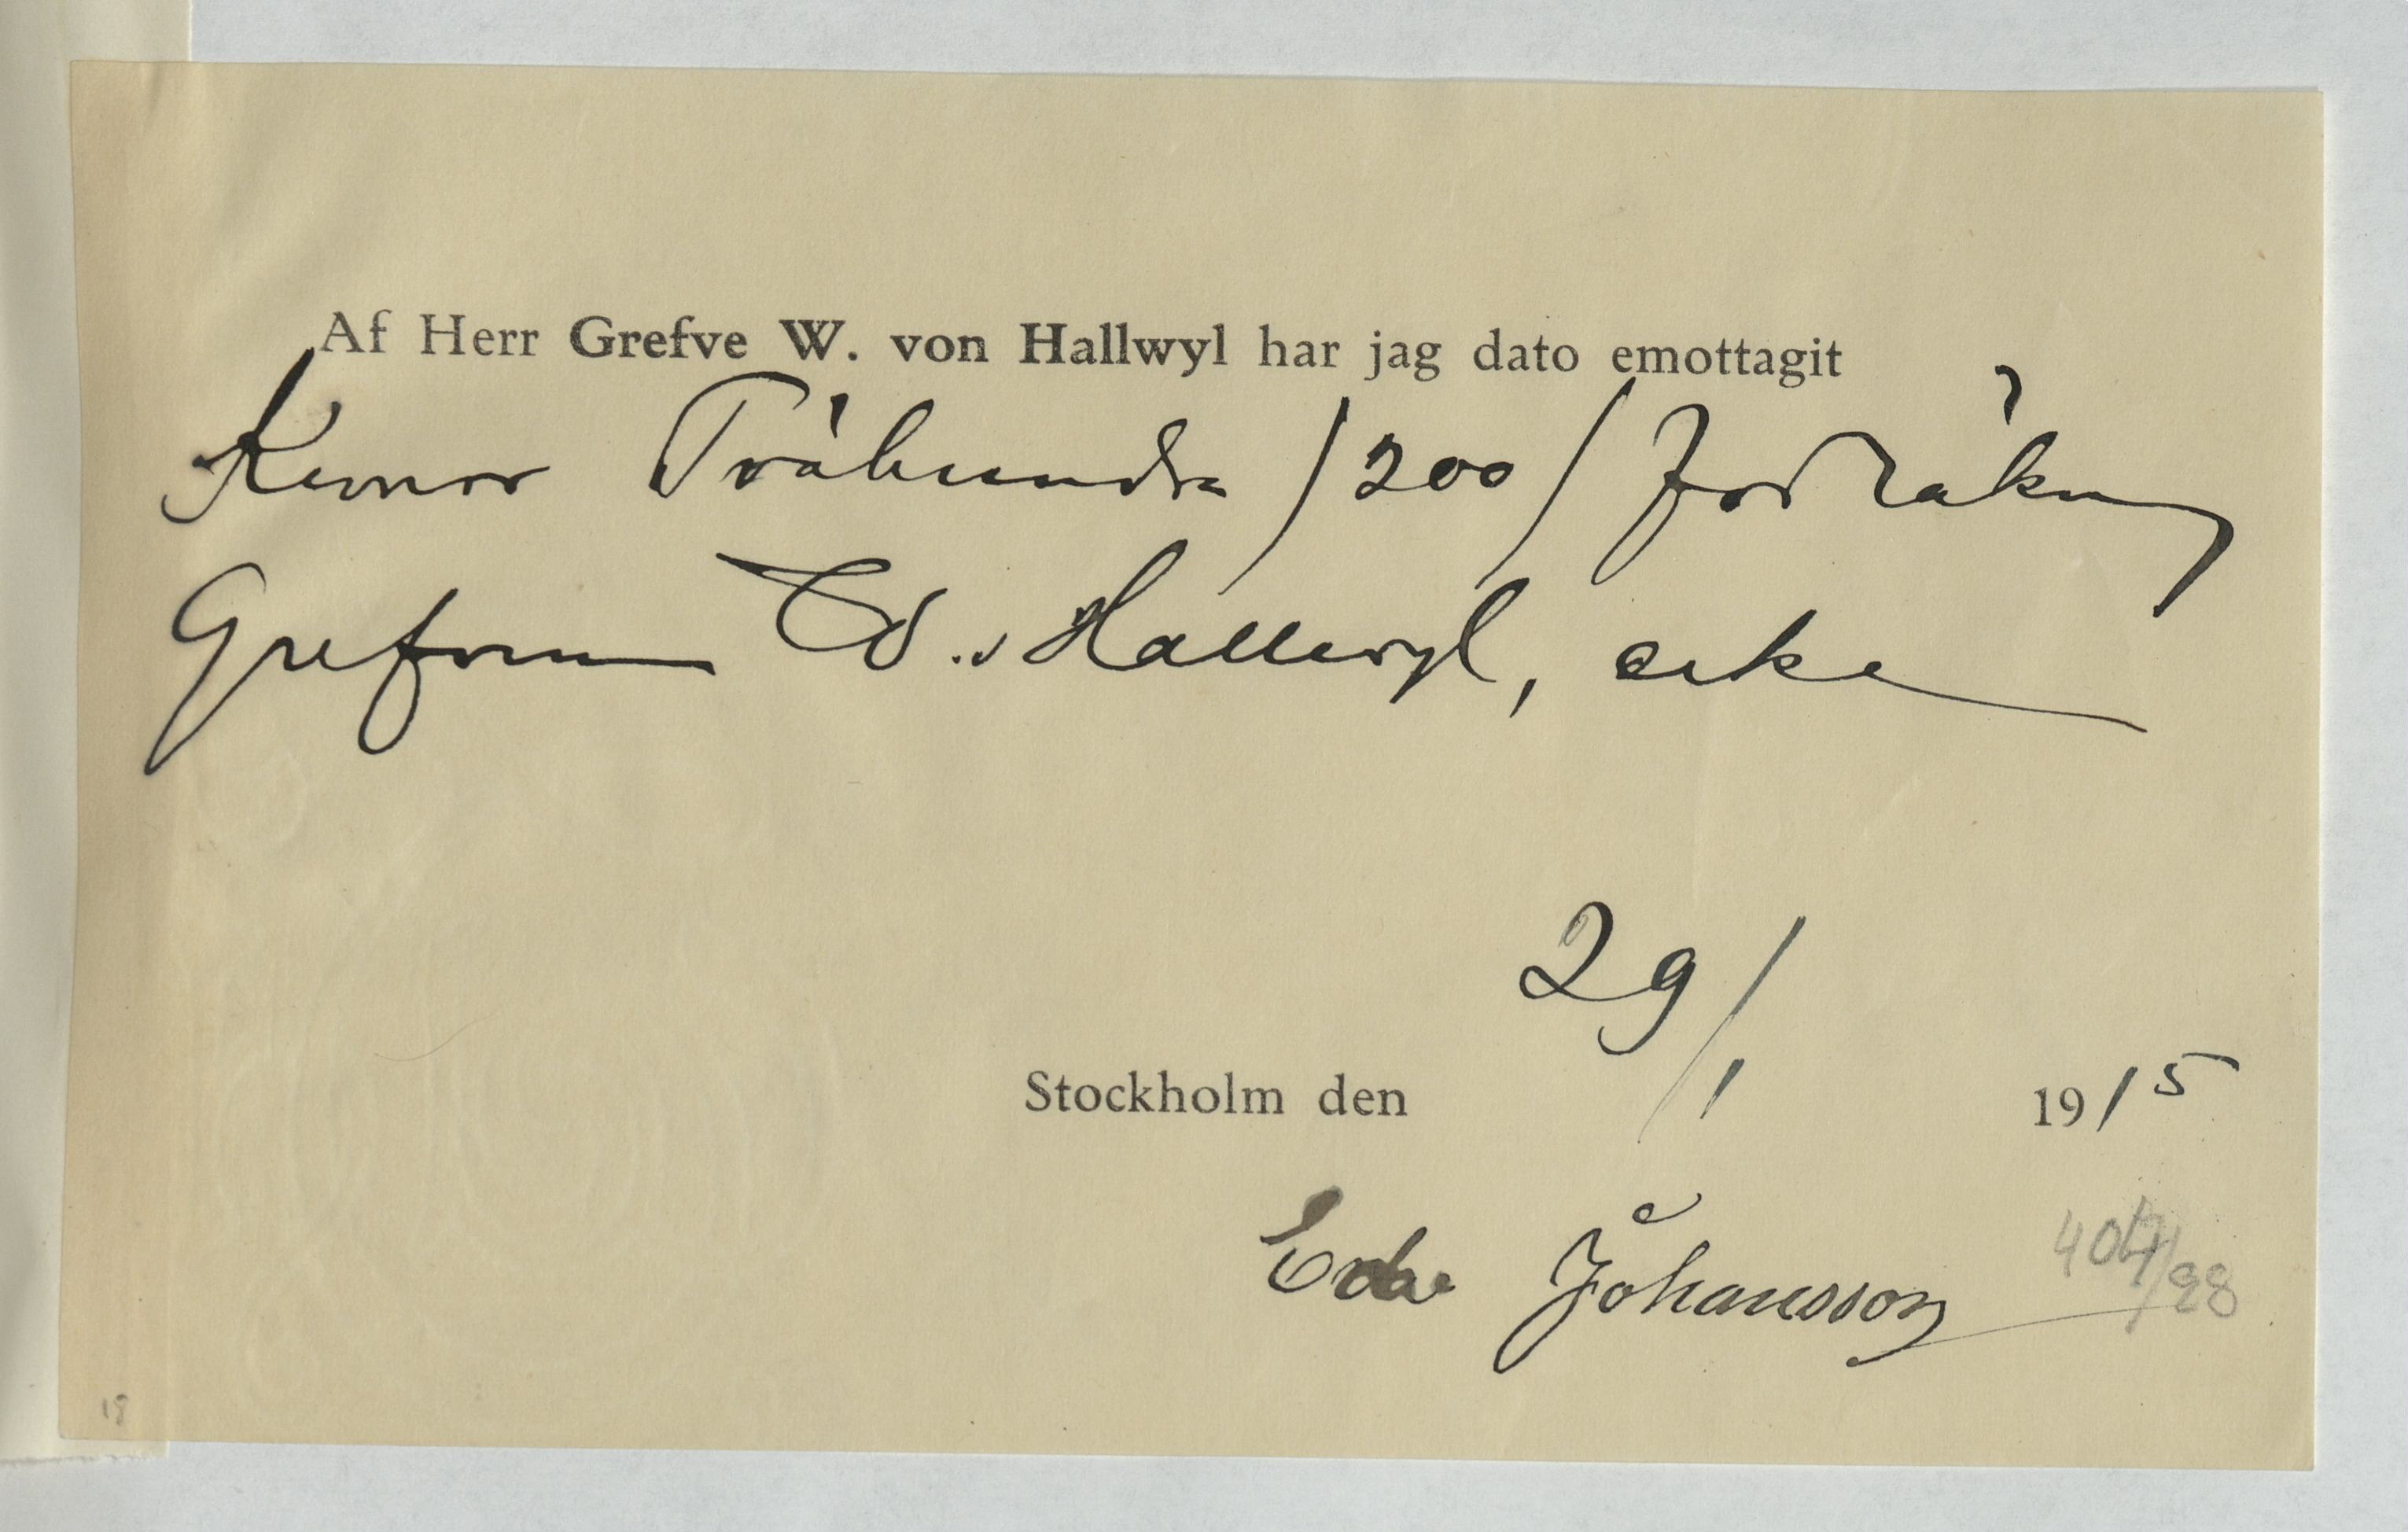 Af Herr Grefve W. von Hallwyl har jag dato emottagit
Kronor Tvåhundra /200/ för räkning
Grefvinnan W. v Hallwyl,
29/1
Stockholm den 1915
Johansson
18